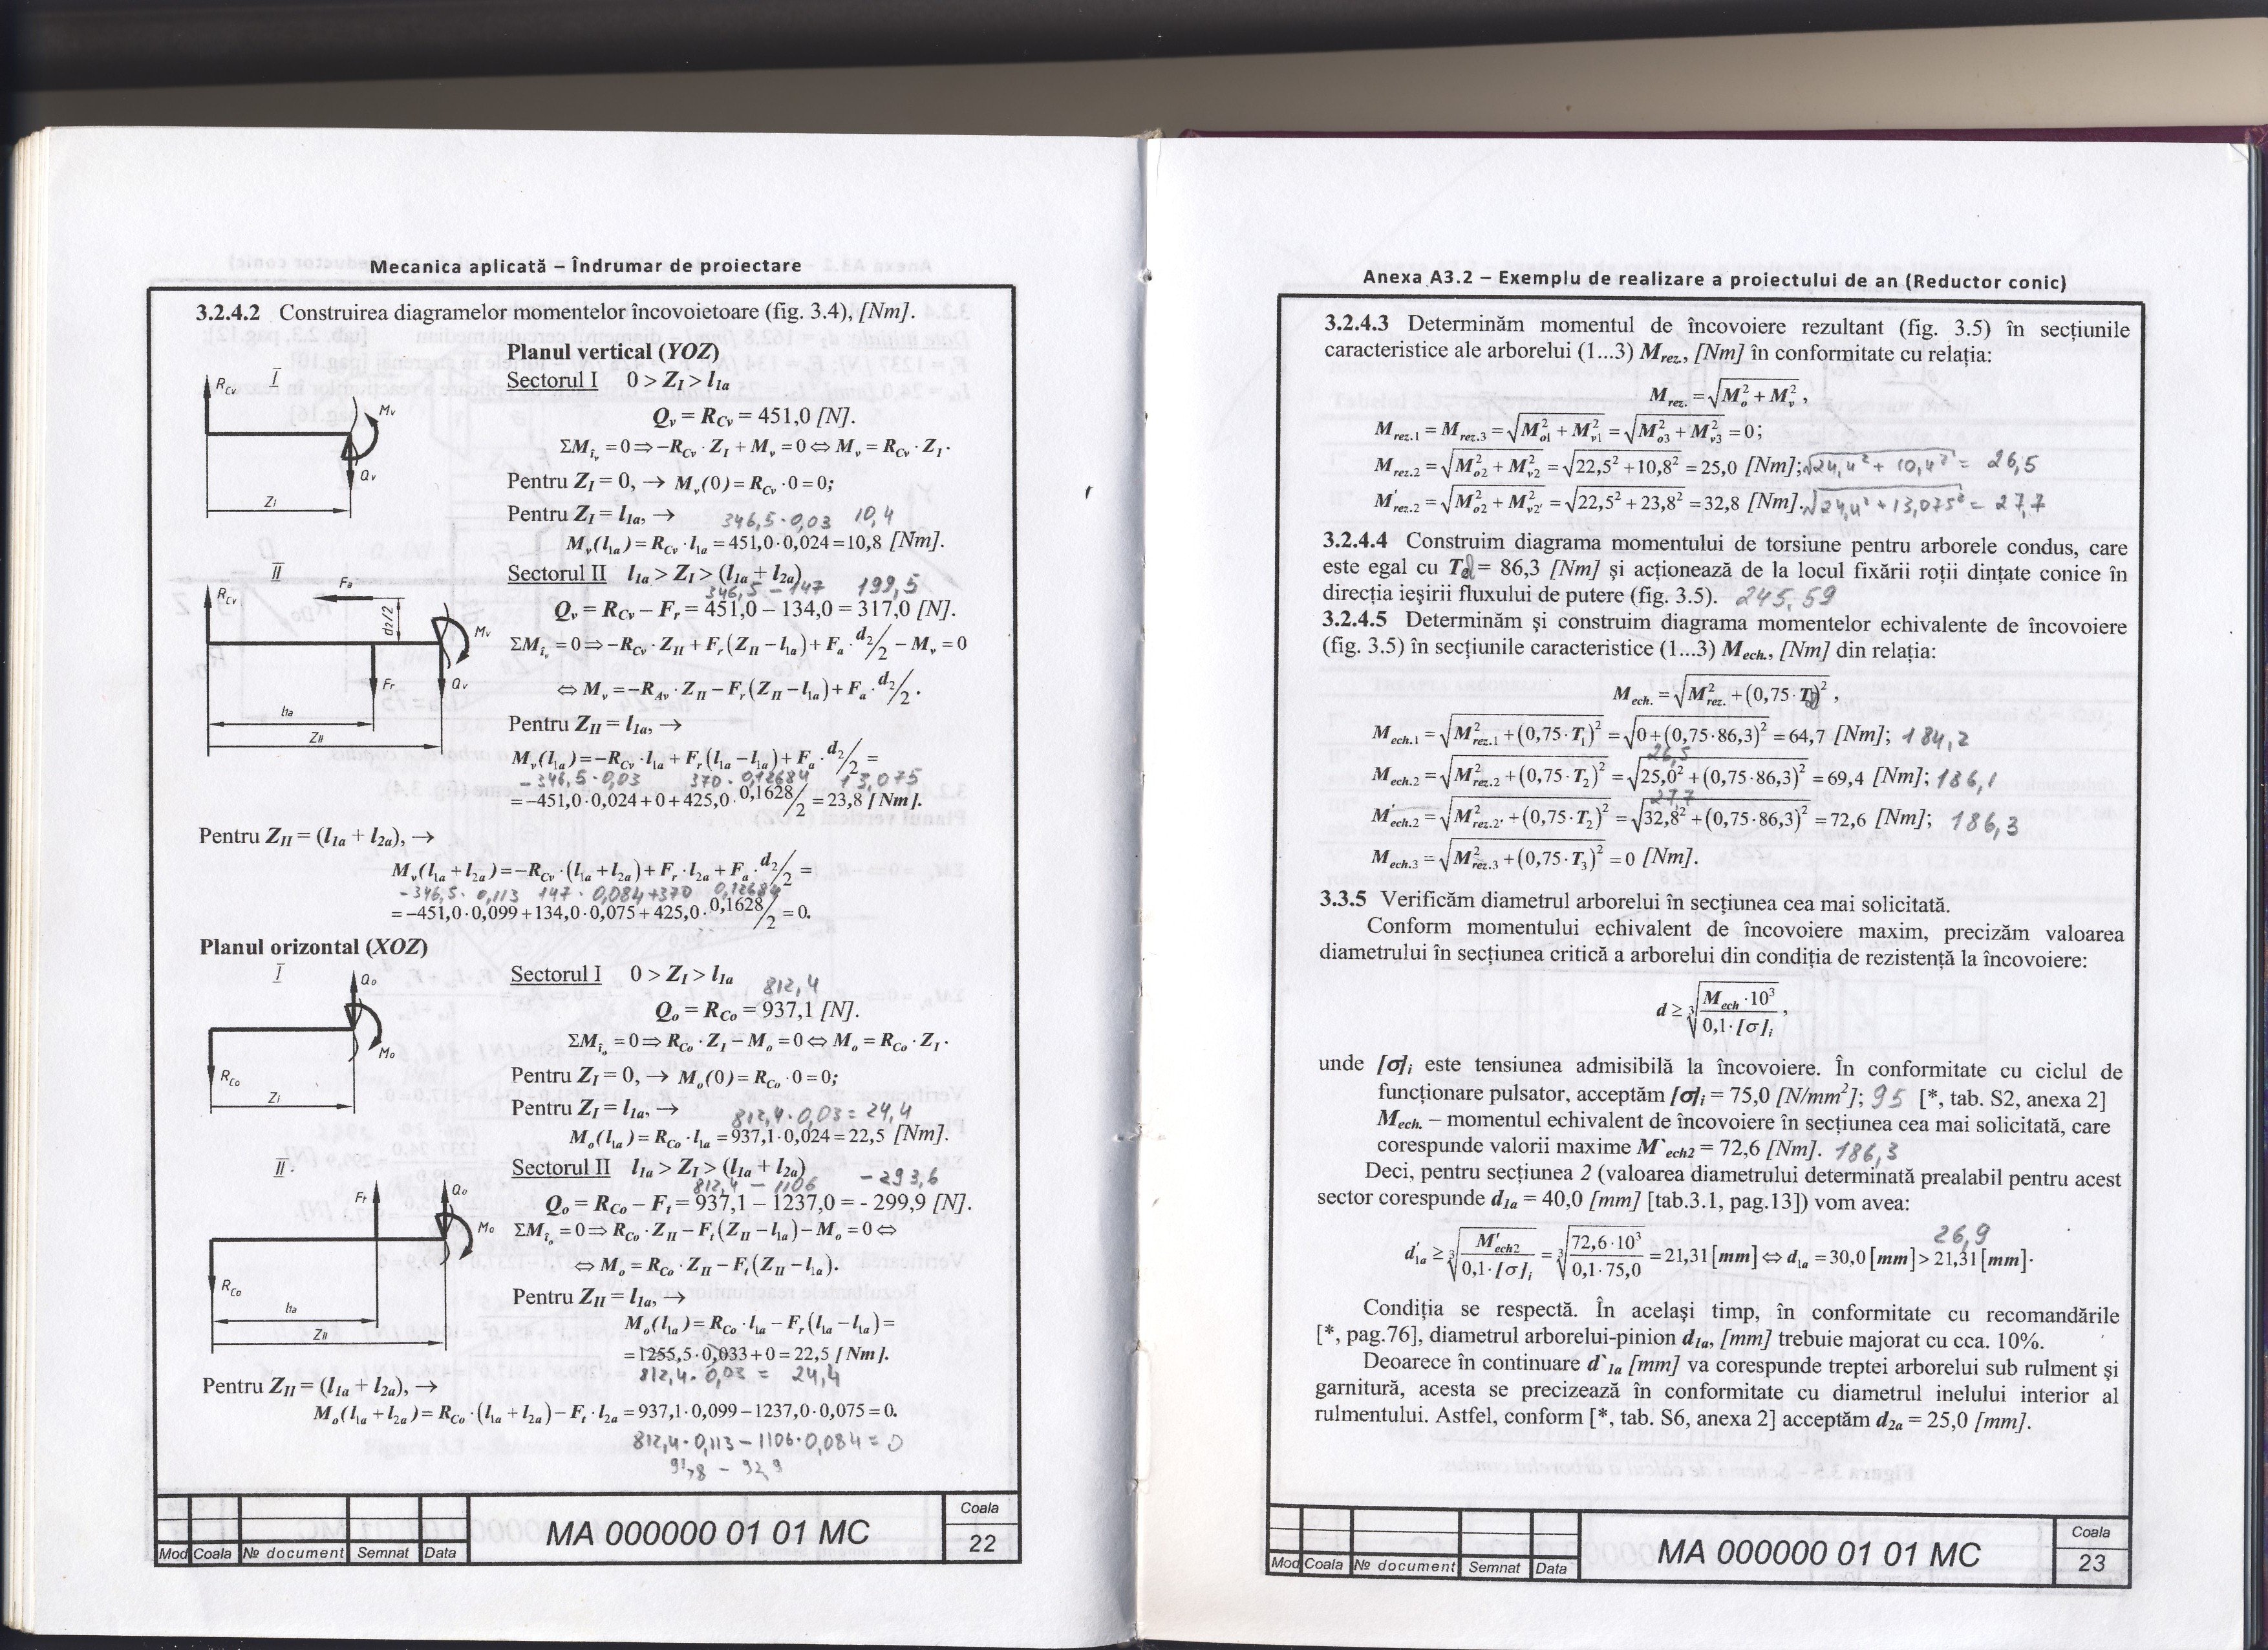 Mecanica aplicată – Îndrumar de proiectare
3.2.4.2 Construirea diagramelor momentelor încovoietoare (fig. 3.4), [Nm].
Planul vertical (YOZ)
Sectorul I 0 > Z_I > l_1a
I
R_Cv
M_v
Q_v
Z_I
Q_v = R_Cv = 451,0 [N].
ΣM_i_v = 0 ⇒ −R_Cv · Z_I + M_v = 0 ⇔ M_v = R_Cv · Z_I ·
Pentru Z_I = 0, → M_v(0) = R_Cv · 0 = 0;
Pentru Z_I = l_1a, →
346,5 · 0,03 10,4
M_v(l_1a) = R_Cv · l_1a = 451,0 · 0,024 = 10,8 [Nm].
II
R_Cv
F_a
d_2/2
M_v
F_r
Q_v
l_1a
Z_II
Sectorul II l_1a > Z_I > (l_1a + l_2a)
346,5 − 147 199,5
Q_v = R_Cv − F_r = 451,0 – 134,0 = 317,0 [N].
ΣM_i_v = 0 ⇒ −R_Cv · Z_II + F_r(Z_II − l_1a) + F_a · d_2/2 − M_v = 0
⇔ M_v = −R_Av · Z_II − F_r(Z_II − l_1a) + F_a · d_2/2 .
Pentru Z_II = l_1a, →
M_v(l_1a) = −R_Cv · l_1a + F_r(l_1a − l_1a) + F_a · d_2/2 =
− 346,5 · 0,03 370 · 0,12684 13,075
= −451,0 · 0,024 + 0 + 425,0 · 0,1628/2 = 23,8 [Nm].
Pentru Z_II = (l_1a + l_2a), →
M_v(l_1a + l_2a) = −R_Cv · (l_1a + l_2a) + F_r · l_2a + F_a · d_2/2 =
− 346,5 · 0,113 147 · 0,084 + 370 0,12684
= −451,0 · 0,099 + 134,0 · 0,075 + 425,0 · 0,1628/2 = 0.
Planul orizontal (XOZ)
I
Q_o
M_o
R_Co
Z_I
Sectorul I 0 > Z_I > l_1a
812,4
Q_o = R_Co = 937,1 [N].
ΣM_i_o = 0 ⇒ R_Co · Z_I − M_o = 0 ⇔ M_o = R_Co · Z_I ·
Pentru Z_I = 0, → M_o(0) = R_Co · 0 = 0;
Pentru Z_I = l_1a, →
812,4 · 0,03 = 24,4
M_o(l_1a) = R_Co · l_1a = 937,1 · 0,024 = 22,5 [Nm].
II
F_t
Q_o
M_o
R_Co
l_1a
Z_II
Sectorul II l_1a > Z_I > (l_1a + l_2a)
812,4 − 1106 − 293,6
Q_o = R_Co − F_t = 937,1 – 1237,0 = - 299,9 [N].
ΣM_i_o = 0 ⇒ R_Co · Z_II − F_t(Z_II − l_1a) − M_o = 0 ⇔
⇔ M_o = R_Co · Z_II − F_t(Z_II − l_1a).
Pentru Z_II = l_1a, →
M_o(l_1a) = R_Co · l_1a − F_r(l_1a − l_1a) =
= 1255,5 · 0,033 + 0 = 22,5 [Nm].
812,4 · 0,03 = 24,4
Pentru Z_II = (l_1a + l_2a), →
M_o(l_1a + l_2a) = R_Co · (l_1a + l_2a) − F_t · l_2a = 937,1 · 0,099 − 1237,0 · 0,075 = 0.
812,4 · 0,113 − 1106 · 0,084 = 0
91,8 − 92,9
Mod Coala № document Semnat Data
MA 000000 01 01 MC
Coala
22
Anexa A3.2 – Exemplu de realizare a proiectului de an (Reductor conic)
3.2.4.3 Determinăm momentul de încovoiere rezultant (fig. 3.5) în secțiunile
caracteristice ale arborelui (1...3) M_rez., [Nm] în conformitate cu relația:
M_rez. = √(M_o² + M_v²) ,
M_rez.1 = M_rez.3 = √(M_o1² + M_v1²) = √(M_o3² + M_v3²) = 0;
M_rez.2 = √(M_o2² + M_v2²) = √(22,5² + 10,8²) = 25,0 [Nm]; √(24,4² + 10,4²) = 26,5
M'_rez.2 = √(M_o2² + M_v2'²) = √(22,5² + 23,8²) = 32,8 [Nm]. √(24,4² + 13,075²) = 27,7
3.2.4.4 Construim diagrama momentului de torsiune pentru arborele condus, care
este egal cu T_2 = 86,3 [Nm] și acționează de la locul fixării roții dințate conice în
direcția ieșirii fluxului de putere (fig. 3.5). 245,59
3.2.4.5 Determinăm și construim diagrama momentelor echivalente de încovoiere
(fig. 3.5) în secțiunile caracteristice (1...3) M_ech., [Nm] din relația:
M_ech. = √(M_rez.² + (0,75 · T_2)²) ,
M_ech.1 = √(M_rez.1² + (0,75 · T_1)²) = √(0 + (0,75 · 86,3)²) = 64,7 [Nm]; 184,2
26,5
M_ech.2 = √(M_rez.2² + (0,75 · T_2)²) = √(25,0² + (0,75 · 86,3)²) = 69,4 [Nm]; 186,1
27,7
M'_ech.2 = √(M_rez.2'² + (0,75 · T_2)²) = √(32,8² + (0,75 · 86,3)²) = 72,6 [Nm]; 186,3
M_ech.3 = √(M_rez.3² + (0,75 · T_3)²) = 0 [Nm].
3.3.5 Verificăm diametrul arborelui în secțiunea cea mai solicitată.
Conform momentului echivalent de încovoiere maxim, precizăm valoarea
diametrului în secțiunea critică a arborelui din condiția de rezistență la încovoiere:
d ≥ ∛(M_ech · 10³ / 0,1 · [σ]_i) ,
unde [σ]_i este tensiunea admisibilă la încovoiere. În conformitate cu ciclul de
funcționare pulsator, acceptăm [σ]_i = 75,0 [N/mm²]; 95 [*, tab. S2, anexa 2]
M_ech. – momentul echivalent de încovoiere în secțiunea cea mai solicitată, care
corespunde valorii maxime M`_ech2 = 72,6 [Nm]. 186,3
Deci, pentru secțiunea 2 (valoarea diametrului determinată prealabil pentru acest
sector corespunde d_1a = 40,0 [mm] [tab.3.1, pag.13]) vom avea:
26,9
d'_1a ≥ ∛(M'_ech2 / 0,1 · [σ]_i) = ∛(72,6 · 10³ / 0,1 · 75,0) = 21,31 [mm] ⇔ d_1a = 30,0 [mm] > 21,31 [mm].
Condiția se respectă. În același timp, în conformitate cu recomandările
[*, pag.76], diametrul arborelui-pinion d_1a, [mm] trebuie majorat cu cca. 10%.
Deoarece în continuare d`_1a [mm] va corespunde treptei arborelui sub rulment și
garnitură, acesta se precizează în conformitate cu diametrul inelului interior al
rulmentului. Astfel, conform [*, tab. S6, anexa 2] acceptăm d_2a = 25,0 [mm].
Mod Coala № document Semnat Data
MA 000000 01 01 MC
Coala
23